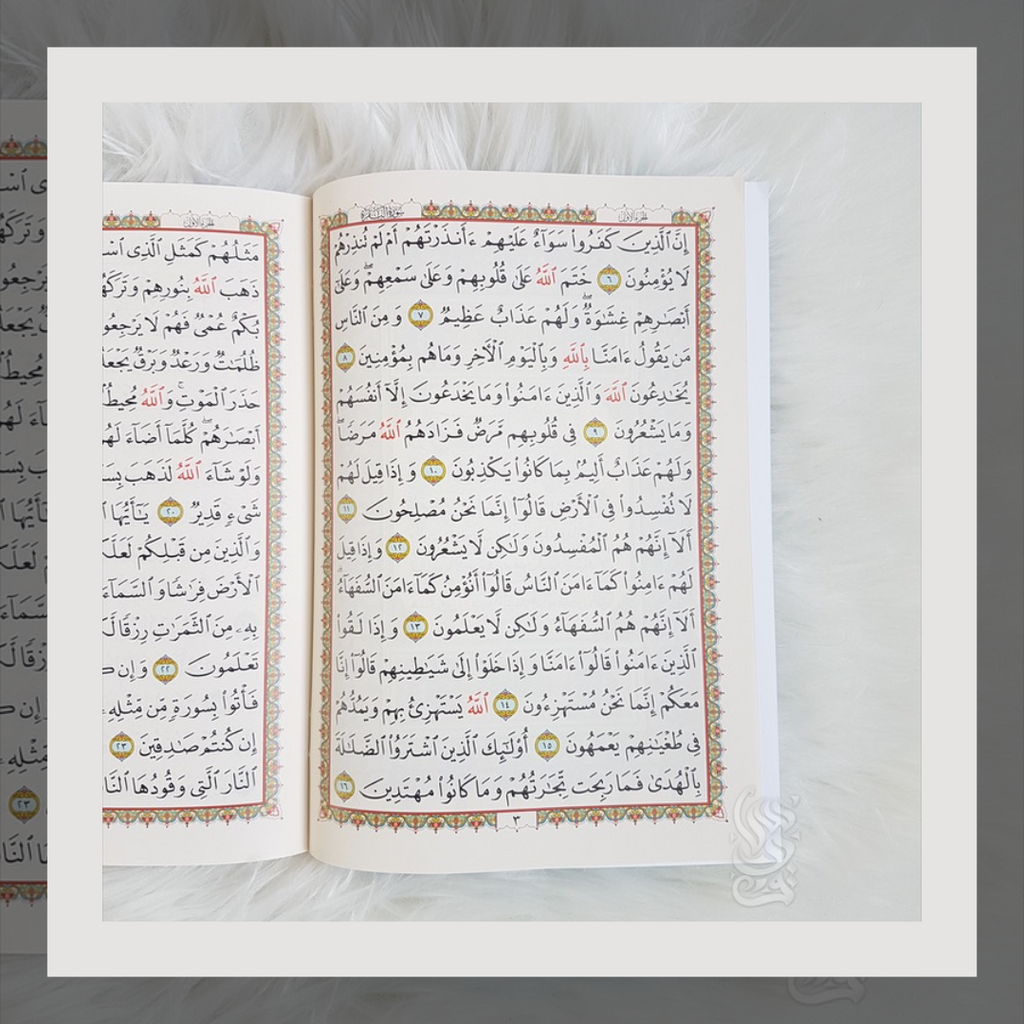 سورة البقرة
الجزء الأول
إِنَّ ٱلَّذِينَ كَفَرُوا۟ سَوَآءٌ عَلَيْهِمْ ءَأَنذَرْتَهُمْ أَمْ لَمْ تُنذِرْهُمْ
لَا يُؤْمِنُونَ ٦ خَتَمَ ٱللَّهُ عَلَىٰ قُلُوبِهِمْ وَعَلَىٰ سَمْعِهِمْ ۖ وَعَلَىٰٓ
أَبْصَٰرِهِمْ غِشَٰوَةٌ ۖ وَلَهُمْ عَذَابٌ عَظِيمٌ ٧ وَمِنَ ٱلنَّاسِ
مَن يَقُولُ ءَامَنَّا بِٱللَّهِ وَبِٱلْيَوْمِ ٱلْءَاخِرِ وَمَا هُم بِمُؤْمِنِينَ ٨
يُخَٰدِعُونَ ٱللَّهَ وَٱلَّذِينَ ءَامَنُوا۟ وَمَا يَخْدَعُونَ إِلَّآ أَنفُسَهُمْ
وَمَا يَشْعُرُونَ ٩ فِى قُلُوبِهِم مَّرَضٌ فَزَادَهُمُ ٱللَّهُ مَرَضًا ۖ
وَلَهُمْ عَذَابٌ أَلِيمٌۢ بِمَا كَانُوا۟ يَكْذِبُونَ ١٠ وَإِذَا قِيلَ لَهُمْ
لَا تُفْسِدُوا۟ فِى ٱلْأَرْضِ قَالُوٓا۟ إِنَّمَا نَحْنُ مُصْلِحُونَ ١١
أَلَآ إِنَّهُمْ هُمُ ٱلْمُفْسِدُونَ وَلَٰكِن لَّا يَشْعُرُونَ ١٢ وَإِذَا قِيلَ
لَهُمْ ءَامِنُوا۟ كَمَآ ءَامَنَ ٱلنَّاسُ قَالُوٓا۟ أَنُؤْمِنُ كَمَآ ءَامَنَ ٱلسُّفَهَآءُ ۗ
أَلَآ إِنَّهُمْ هُمُ ٱلسُّفَهَآءُ وَلَٰكِن لَّا يَعْلَمُونَ ١٣ وَإِذَا لَقُوا۟
ٱلَّذِينَ ءَامَنُوا۟ قَالُوٓا۟ ءَامَنَّا وَإِذَا خَلَوْا۟ إِلَىٰ شَيَٰطِينِهِمْ قَالُوٓا۟ إِنَّا
مَعَكُمْ إِنَّمَا نَحْنُ مُسْتَهْزِءُونَ ١٤ ٱللَّهُ يَسْتَهْزِئُ بِهِمْ وَيَمُدُّهُمْ
فِى طُغْيَٰنِهِمْ يَعْمَهُونَ ١٥ أُو۟لَٰٓئِكَ ٱلَّذِينَ ٱشْتَرَوُا۟ ٱلضَّلَٰلَةَ
بِٱلْهُدَىٰ فَمَا رَبِحَت تِّجَٰرَتُهُمْ وَمَا كَانُوا۟ مُهْتَدِينَ ١٦
٣
مَثَلُهُمْ كَمَثَلِ ٱلَّذِى
ذَهَبَ ٱللَّهُ بِنُورِهِمْ
بُكْمٌ عُمْىٌ فَهُمْ لَا
ظُلُمَٰتٌ وَرَعْدٌ وَبَرْقٌ
حَذَرَ ٱلْمَوْتِ ۚ وَٱللَّهُ
أَبْصَٰرَهُمْ ۖ كُلَّمَآ أَضَآءَ
وَلَوْ شَآءَ ٱللَّهُ لَذَهَبَ
شَىْءٍ قَدِيرٌ ٢٠ يَٰٓأَيُّهَا
وَٱلَّذِينَ مِن قَبْلِكُمْ
ٱلْأَرْضَ فِرَٰشًا وَٱلسَّمَآءَ
بِهِۦ مِنَ ٱلثَّمَرَٰتِ رِزْقًا
تَعْلَمُونَ ٢٢ وَإِن
فَأْتُوا۟ بِسُورَةٍ مِّن مِّثْلِهِۦ
إِن كُنتُمْ صَٰدِقِينَ ٢٣
ٱلنَّارَ ٱلَّتِى وَقُودُهَا